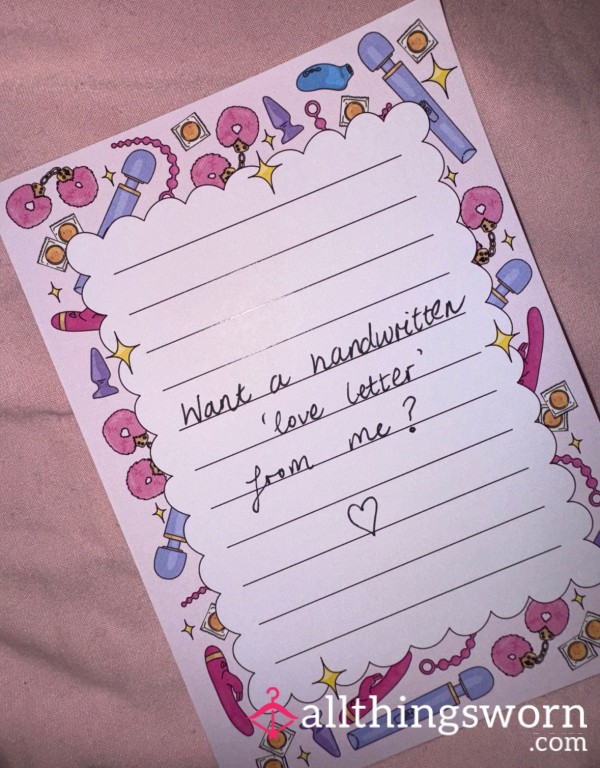 Want a handwritten
'love letter'
from me?
allthingsworn
.com